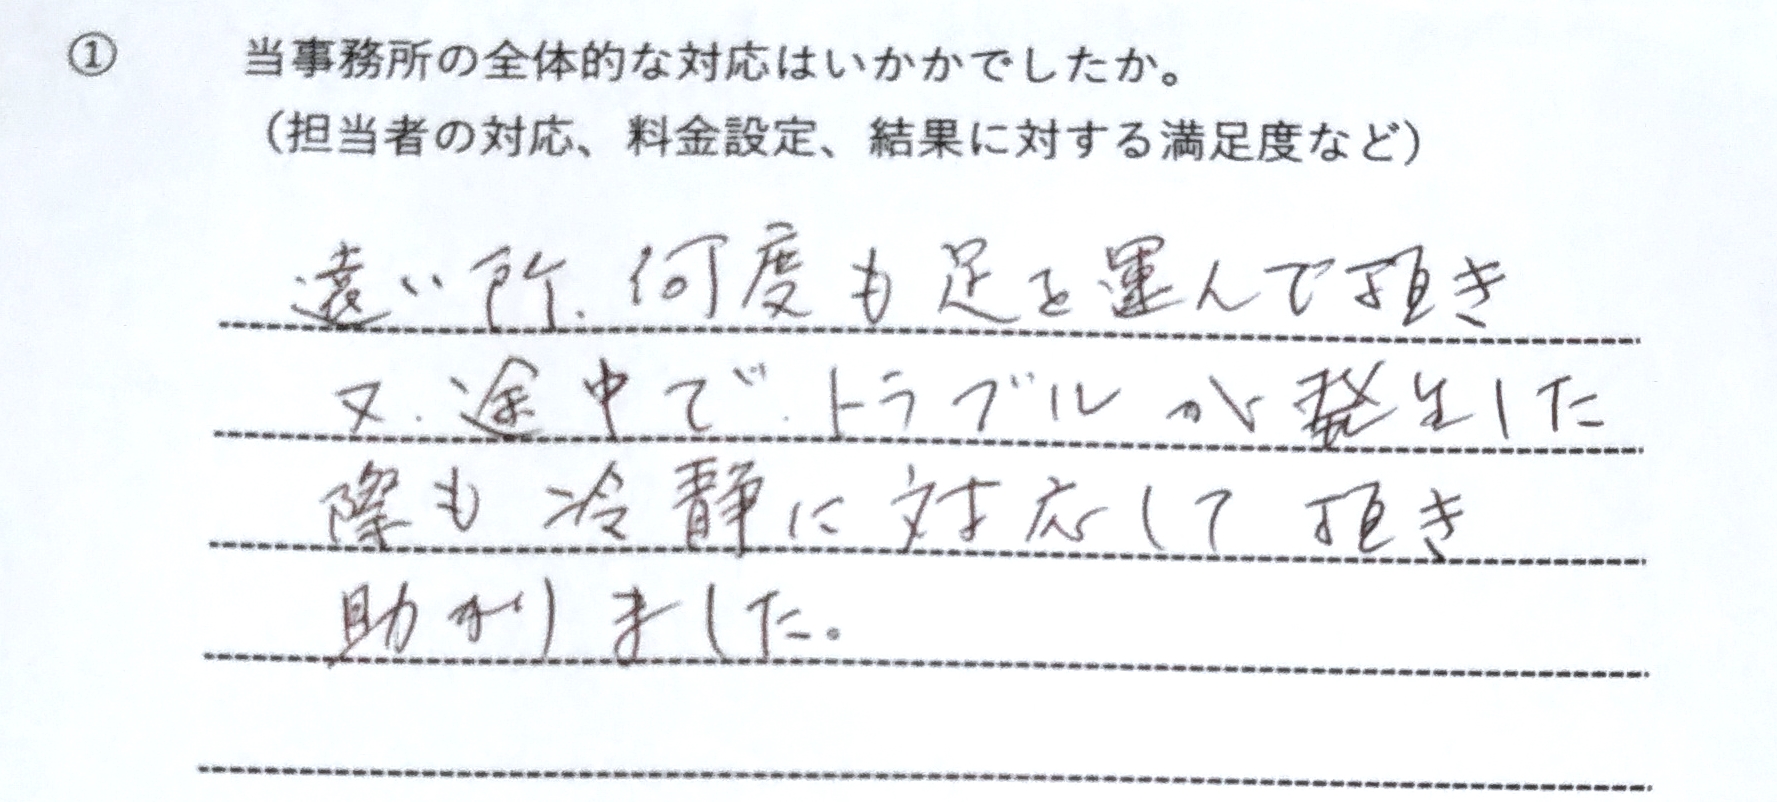 ① 当事務所の全体的な対応はいかかでしたか。
（担当者の対応、料金設定、結果に対する満足度など）
遠い所、何度も足を運んで頂き
又、途中で、トラブルが発生した
際も冷静に対応して頂き
助かりました。